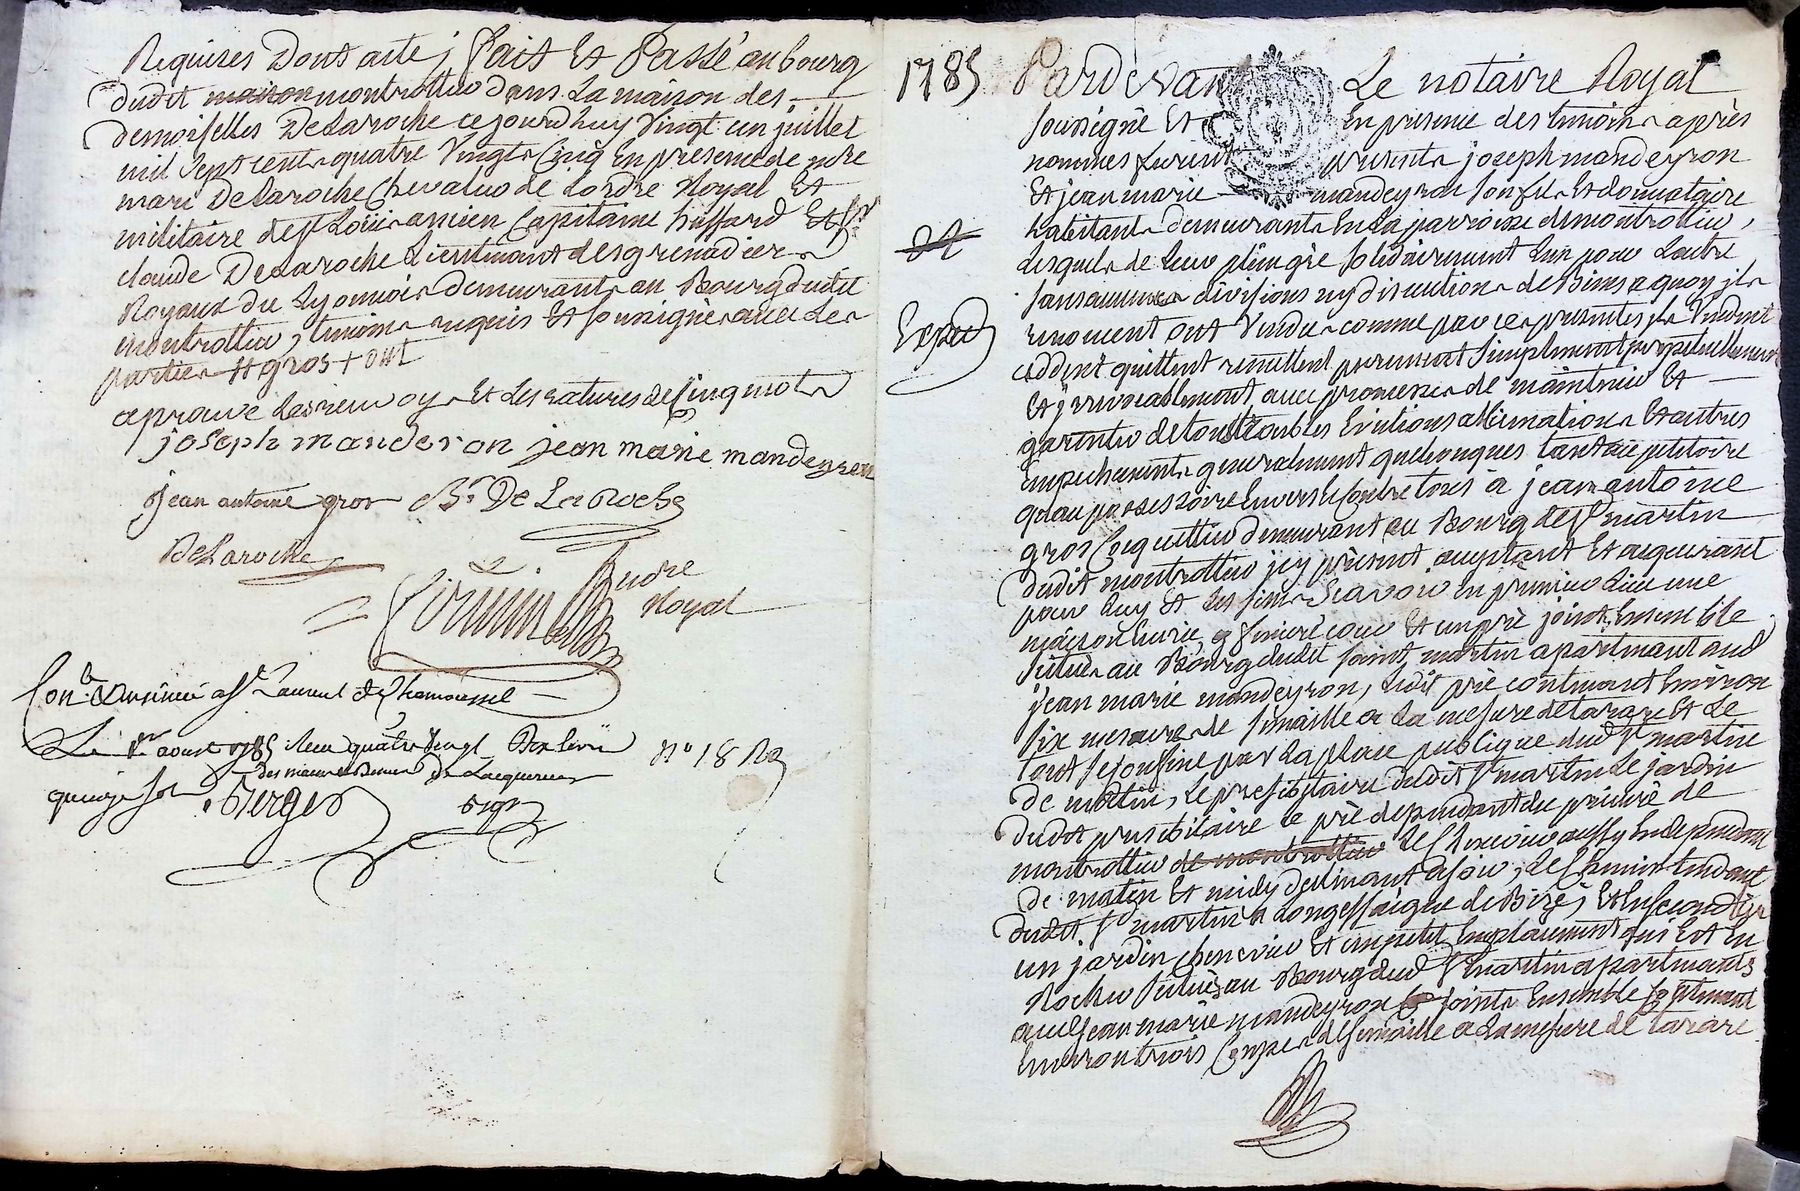 Requises Dont acte, fait Et Passé au bourg
dudit maison montrottier dans La maison des
demoiselles DeLaroche ce jourdhuy Vingt un juillet
mil Sept cents quatre Vingts Cinq En presence de
marc DeLaroche Chevalier de Lordre Royal Et
militaire de st Loüis ancien Capitaine hussard Et Sr
claude DeLaroche Lieutenant des grenadiers
Royaux du Lyonnois demeurants au Bourg dudit
montrottier, temoins requis Et soussignés avec Les
parties # gros + ont
aprouve Les renvoys Et Les ratures de Cinq mots
joseph manderon jean marie mandeyron
jean antoine gros Ch.r De LaRoche
DeLaroche
nore
Royal
Con.lé Ansinué a St Laurent de Chamousset
Le 1er aoust 1785 Reçu quatre Vingt Dix livre
quinze sol Berger No 18 Ro
1785 Pardevant Le notaire Royal
soussigné Et En presence des temoins après
nommes furent presents joseph mandeyron
Et jean marie mandeyron son fils Et donnataire
habitants demeurants En La parroisse de montrottier,
Lesquels de Leur plein gré solidairement Lun pour Lautre
sans aucunes divisions ny discution de Biens a quoy ils
Exped
renoncent ont Vendu comme par ces presentes ils Vendent
ceddent quittent remettent purement simplement perpetuellement
Et irrevocablement avec promesse de maintenir Et
garentir de tous troubles Evictions allienations Et autres
empechements generalement quelconques tant au petitoire
qu'au possessoire Envers Et Contre tous à jean antoine
gros Coquettier demeurant au Bourg de st martin
dudit montrottier icy présent acceptant Et acquerant
pour Luy Et Les siens Scavoir En premier Lieu une
maison Ecurie fenieré cour Et un pré joints Ensemble
situés au Bourg dudit saint martin apartenant aud
jean marie mandeyron, Ledit pré contenant Environ
six mesures de semaille a La mesure de tarare Et Le
tout se Confine par La place publique dud st martin
de matin, Le presbitaire dudit st martin Le jardin
dudit presbitaire Le pré dependant du prieuré de
montrottier de montrottier Le Chenevier aussy En dependant
de matin Et midy declinant a soir, Le Chemin tendant
dudit st martin a Longessaigne de Bize, Et En second Lieu
un jardin chenevier Et un petit Emplacement qui Est En
Rocher situés au Bourg dud st martin apartenants
audit jean marie mandeyron joints Ensemble Contenant
Environ trois Coupes de semaille a La mesure de tarare